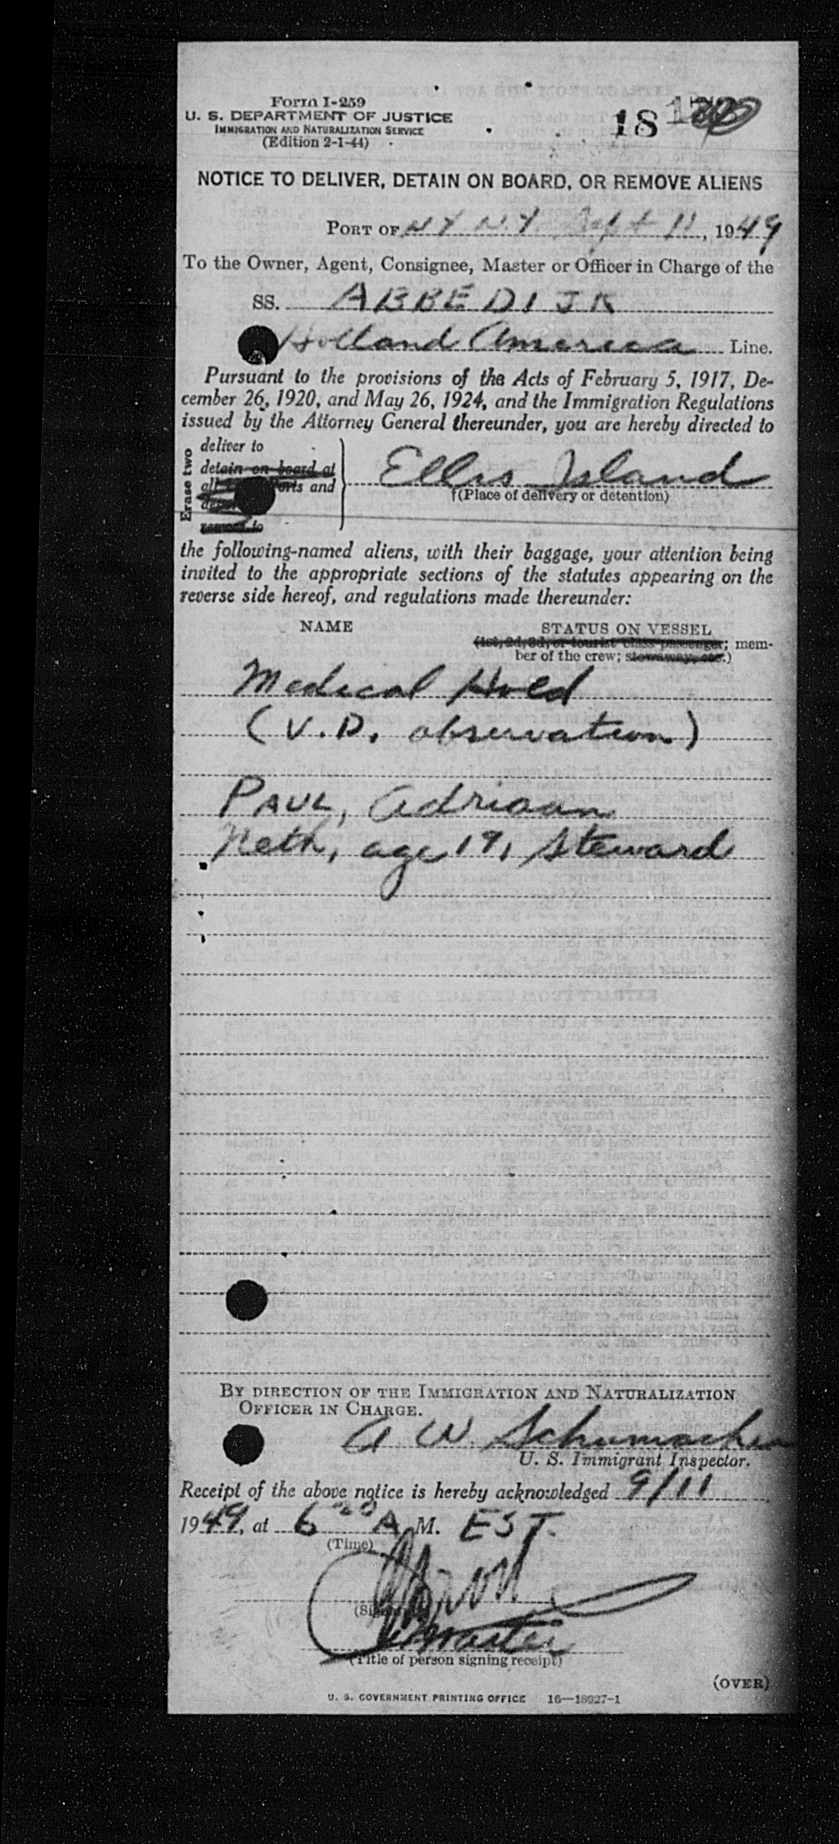 Form I-259
U. S. DEPARTMENT OF JUSTICE
IMMIGRATION AND NATURALIZATION SERVICE
(Edition 2-1-44)
18
NOTICE TO DELIVER, DETAIN ON BOARD, OR REMOVE ALIENS
PORT OF N Y N.Y. Sept 11, 1949
To the Owner, Agent, Consignee, Master or Officer in Charge of the
SS. ABBEDIJK
Holland America Line.
Pursuant to the provisions of the Acts of February 5, 1917, De-
cember 26, 1920, and May 26, 1924, and the Immigration Regulations
issued by the Attorney General thereunder, you are hereby directed to
Erase two
deliver to
detain on board at
all ports and
Ellis Island
remove to
†(Place of delivery or detention)
the following-named aliens, with their baggage, your attention being
invited to the appropriate sections of the statutes appearing on the
reverse side hereof, and regulations made thereunder:
NAME STATUS ON VESSEL
(1st, 2d, 3d, or tourist class passenger; mem-
ber of the crew; stowaway, etc.)
Medical Hold
(V.D. observation)
PAUL, Adriaan
Neth, age 19, Steward
BY DIRECTION OF THE IMMIGRATION AND NATURALIZATION
OFFICER IN CHARGE.
A W Schumacher
U. S. Immigrant Inspector.
Receipt of the above notice is hereby acknowledged 9/11
1949, at 6 A M. EST.
(Time)
Master
(Title of person signing receipt)
(OVER)
U. S. GOVERNMENT PRINTING OFFICE 16—18027-1